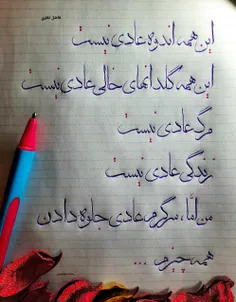 فاضل نظری
این همه اندوه عادی نیست
این همه گلدانهای خالی عادی نیست
مرگ عادی نیست
زندگی عادی نیست
من امّا، سرگرم عادی جلوه دادن
همه چیزم ...